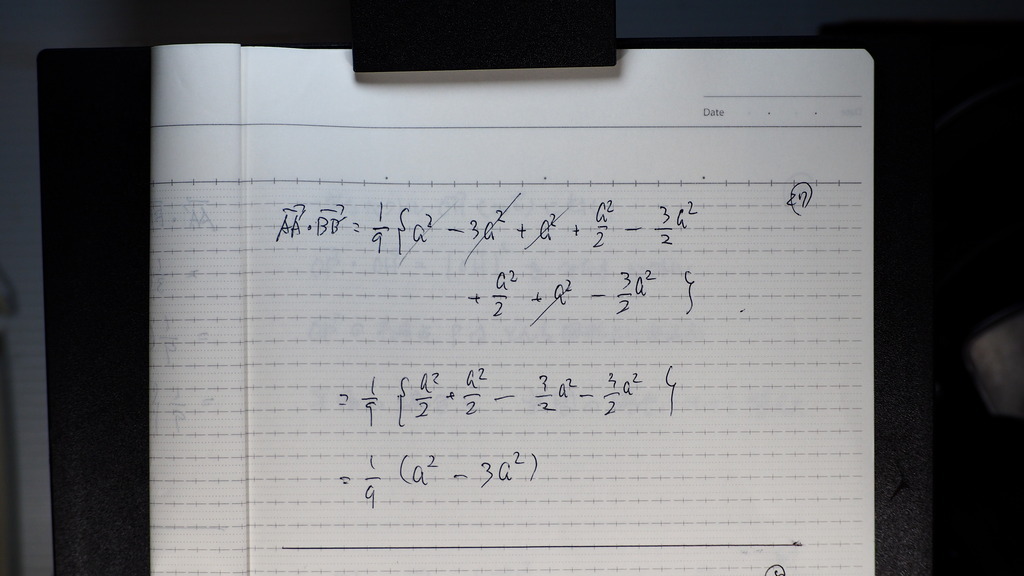 Date
AA⃗·BB⃗ = 1/9 { a² − 3a² + a² + a²/2 − 3/2 a²
+ a²/2 + a² − 3/2 a² }
= 1/9 { a²/2 + a²/2 − 3/2 a² − 3/2 a² }
= 1/9 (a² − 3a²)